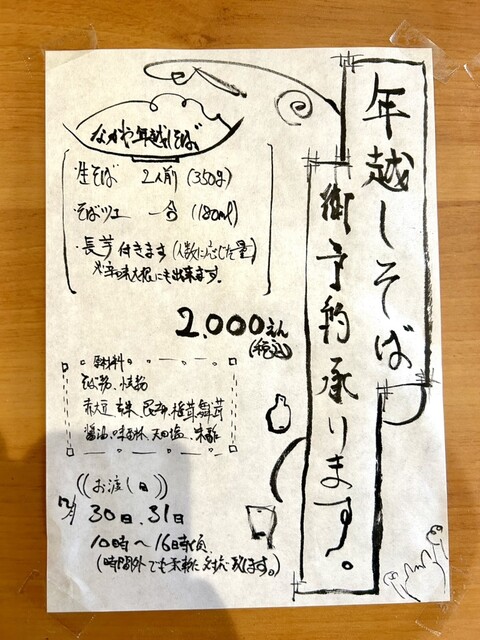 年越しそば
御予約承ります。
ながや年越しそば
・生そば 2人前 (350g)
・そばツユ 一合 (180ml)
・長芋付きます (人数に応じた量)
※辛味大根にも出来ます。
2,000えん
(税込)
原材料
そば粉、小麦粉
赤大豆、玄米、昆布、椎茸、舞茸
醤油、味醂、天日塩、米酢
((お渡し日))
12月 30日、31日
10時〜16時頃
(時間外でも柔軟に対応致します。)